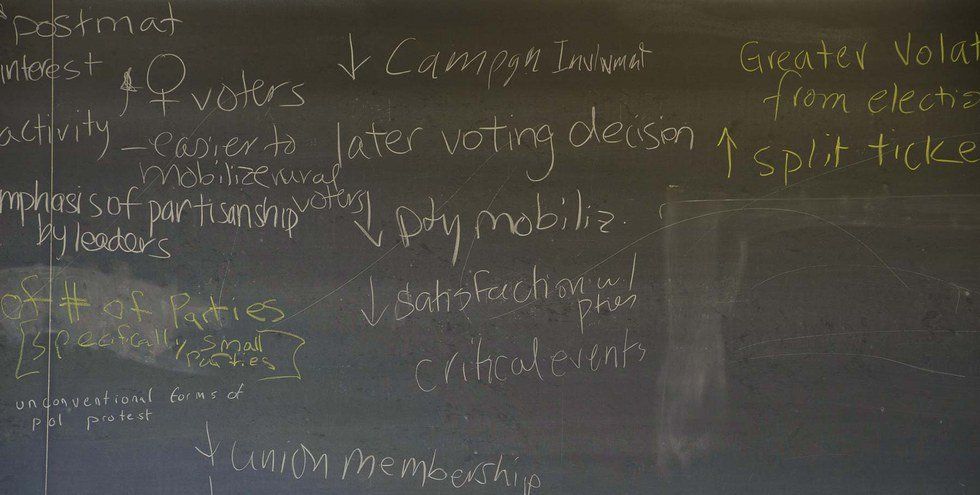 postmat
interest
↑ ♀ voters
activity
– easier to
mobilize rural
voters
mphasis of partisanship
by leaders
of # of Parties
[specifically small
parties]
unconventional forms of
pol protest
↓ Campgn Invlvmnt
later voting decision
↓ pty mobiliz.
↓ satisfaction w/
pties
critical events
↓ union membership
Greater Volat
from electio
↑ split ticke